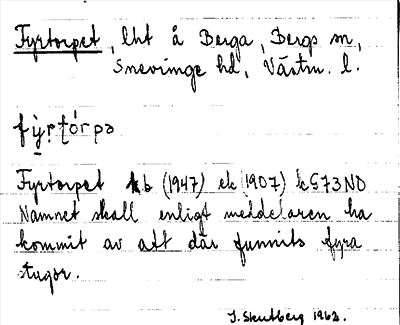 Fyrtorpet, lht å Berga, Bergs sn,
Snevringe hd, Västm. l.
fỳ̱rtórpə
Fyrtorpet kb (1947) ek (1907) kG73NO
Namnet skall enligt meddelaren ha
kommit av att där funnits fyra
stugor.
J. Skutberg 1962.